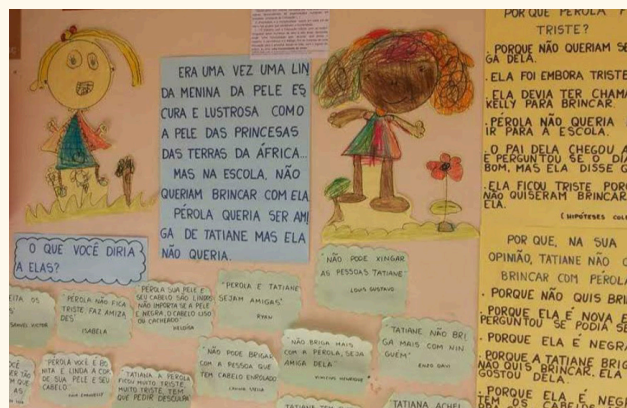 ERA UMA VEZ UMA LIN
DA MENINA DA PELE ES
CURA E LUSTROSA COMO
A PELE DAS PRINCESAS
DAS TERRAS DA ÁFRICA...
MAS NA ESCOLA, NÃO
QUERIAM BRINCAR COM ELA
PÉROLA QUERIA SER AMI
GA DE TATIANE MAS ELA
NÃO QUERIA.
O QUE VOCÊ DIRIA
A ELAS?
EITA OS
SAMUEL VICTOR
"PÉROLA NÃO FICA
TRISTE. FAZ AMIZA
DES"
ISABELA
PÉROLA SUA PELE E
SEU CABELO SÃO LINDOS
NÃO IMPORTA SE A PELE
É NEGRA, O CABELO LISO
OU CACHEADO"
HELOÍSA
"PEROLA E TATIANE
SEJAM AMIGAS"
RYAN
"NÃO PODE XINGAR
AS PESSOAS TATIANE"
LOUIS GUSTAVO
"PÉROLA VOCÊ É BO
NITA E LINDA A COR
DE SUA PELE E SEU
CABELO"
TATIANA A PÉROLA
FICOU MUITO TRISTE,
MUITO TRISTE. TEM
QUE PEDIR DESCULPA
NÃO PODE BRIGAR
COM A PESSOA QUE
TEM CABELO ENROLADO
NÃO BRIGA MAIS
COM A PÉROLA, SEJA
AMIGA DELA"
"TATIANE NÃO BRI
GA MAIS COM NIN
GUÉM"
ENZO DAVI
TATIANE TEM
TATIANA ACHEI
POR QUE PÉROLA
TRISTE?
. PORQUE NÃO QUERIAM SE
GA DELA.
. ELA FOI EMBORA TRISTE
. ELA DEVIA TER CHAMA
KELLY PARA BRINCAR.
. PÉROLA NÃO QUERIA
IR PARA A ESCOLA.
. O PAI DELA CHEGOU
E PERGUNTOU SE O DIA
BOM, MAS ELA DISSE Q
. ELA FICOU TRISTE PORQ
NÃO QUISERAM BRINCAR
ELA.
(HIPÓTESES
POR QUE, NA SUA
OPINIÃO, TATIANE NÃO
BRINCAR COM PÉROLA
. PORQUE NÃO QUIS BRI
. PORQUE ELA É NOVA E
PERGUNTOU SE PODIA SE
. PORQUE ELA É NEGRA
. PORQUE A TATIANE BRIG
NÃO QUIS BRINCAR. ELA
GOSTOU DELA.
. PORQUE ELA É NEG
TEM OS CABELOS